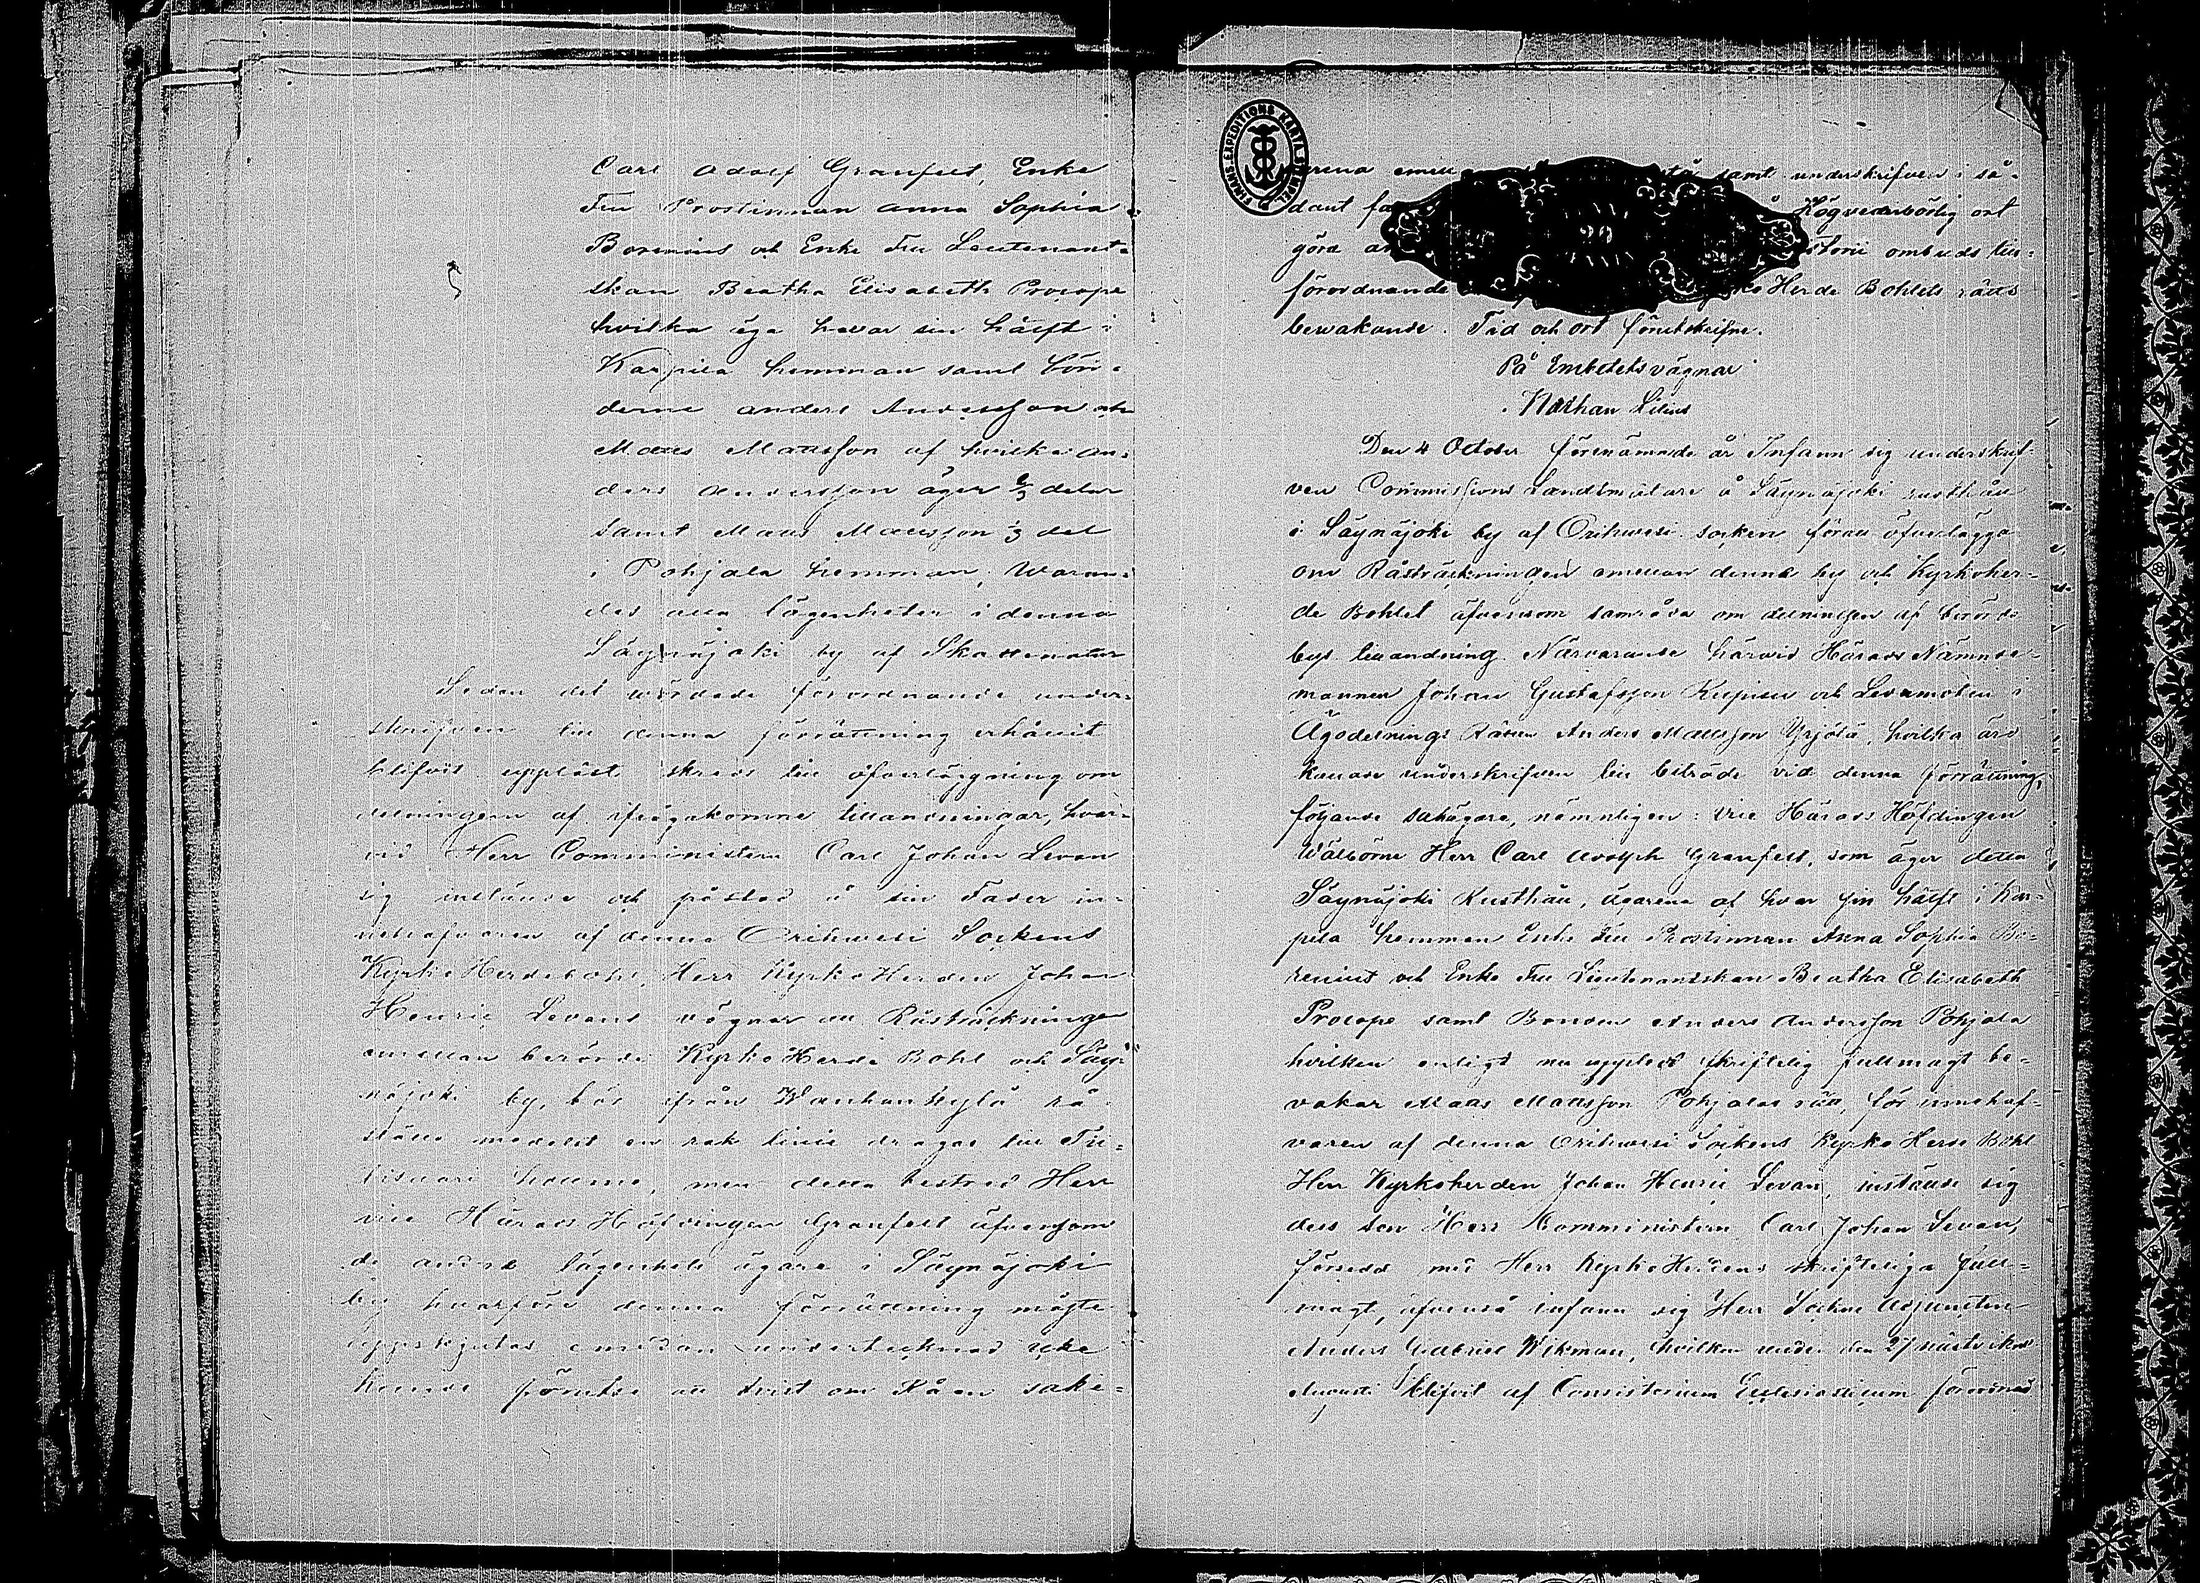 Carl Adolf Granfelt, Enke
Fru Prostinnan Anna Sophia
Borenius och Enke Fru Leutenant-
skan Beatha Elisabeth Procopé
hvilka äga hvar sin hälft i
Karpila hemman samt Bön-
derne Anders Andersson och
Matts Mattsson af hvilka An-
ders Andersson äger 2/3 delar
samt Matts Mattsson 1/3 del
i Pohjala hemman, Waran-
des alla lägenheter i denna
Säynäjoki by af Skattenatur
Sedan det wördade förordnande under-
skrifven till denna förrättning erhållit
blifvit uppläst skreds till öfverläggning om
delningen af ifrågakomne tillandningar, hvar-
vid Herr Comministern Carl Johan Levan
sig instälde och påstod å sin Fader in-
nehafvaren af denna Orihwesi Sockens
KyrkoHerdebohl, Herr KyrkoHerden Johan
Henric Levans vägnar att Råsträckningen
emellan berörde KyrkoHerde Bohl och Säy-
näjoki by, bör från Wanhankylä rå
ställe medelst en rak linie dragas till
men detta bestred Herr
vice Härads Höfdingen Granfelt äfvensom
de andra lägenhets ägare i Säynäjoki
by hvarföre denna förrättning måste
uppskjutas emedan undertecknad icke
kunde förlika att tvist om Rå en sake-
emell samt underskrifven i så-
dant Högvederbörlig ort
göra ombuds till-
förordnande Herde Bohlets rätts
bevakande. Tid och ort förutskrifne.
På Embetets vägnar
Nathan Lilius
Den 4 October förenämnde år Infann sig underskrif-
ven Commissions Landtmätare å Säynäjoki rusthåll
i Säynäjoki by af Orihwesi socken för att öfverlägga
om Råsträckningen emellan denna by och Kyrkoher-
de Bohlet äfvensom samråda om delningen af berörde
bys tillandning. Närvarande härvid Härads Nämnde-
mannen Johan Gustafsson och Ledamoten i
Ägodelnings Rätten Anders Mattsson Yrjölä, hvilka äro
kallade underskrifven till biträde vid denna förrättning,
följande sakägare, nämnligen: vice Härads Höfdingen
Wälborne Herr Carl Adolph Granfelt, som äger detta
Säynäjoki Rusthåll, ägarena af hvar sin hälft i Kar-
pila hemman Enke Fru Prostinnan Anna Sophia Bo-
renius och Enke Fru Lieutenantskan Beatha Elisabeth
Procopé samt Bonden Anders Andersson Pohjala
hvilken enligt nu uppläst skriftelig fullmagt be-
vakar Matts Mattsson Pohjalas rätt, för innehaf-
varen af denna Orihwesi Sockens KyrkoHerde Bohl
Herr Kyrkoherden Johan Henric Levan, instälde sig
dess son Herr Comministern Carl Johan Levan,
försedd med Herr KyrkoHerdens skrifteliga full-
magt, äfvenså infann sig Herr Sockne Adjuncten
Anders Gabriel Wikman, hvilken under den 27 nästvikne
Augusti blifvit af Consistorium Ecclesiasticum förordnad